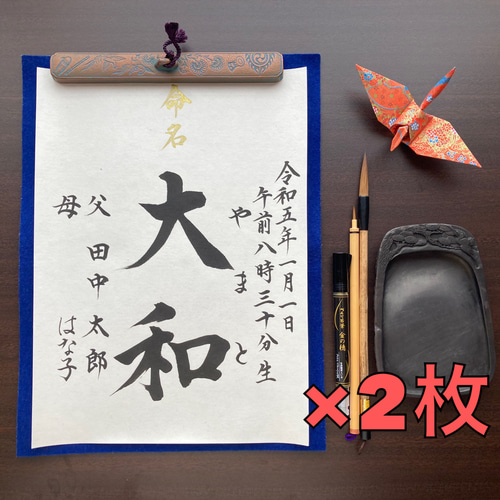 命名
令和五年一月一日
午前八時三十分生
やまと
大和
父 田中 太郎
母 はな子
金の穂
×2枚